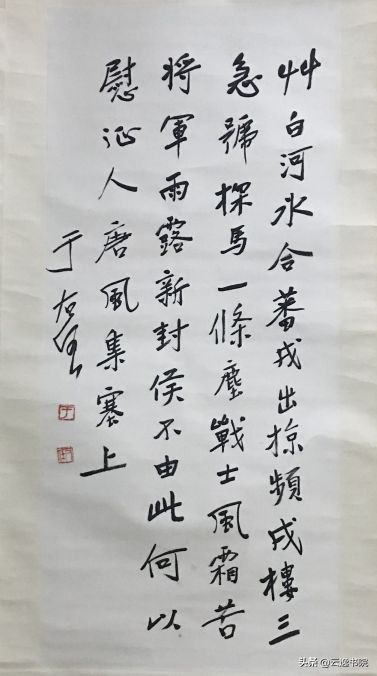 艸白河氷合蕃戎出掠頻戍樓三
急號探馬一條塵戰士風霜苦
將軍雨露新封侯不由此何以
慰征人唐風集塞上
于右任
于
头条 @云逸书院